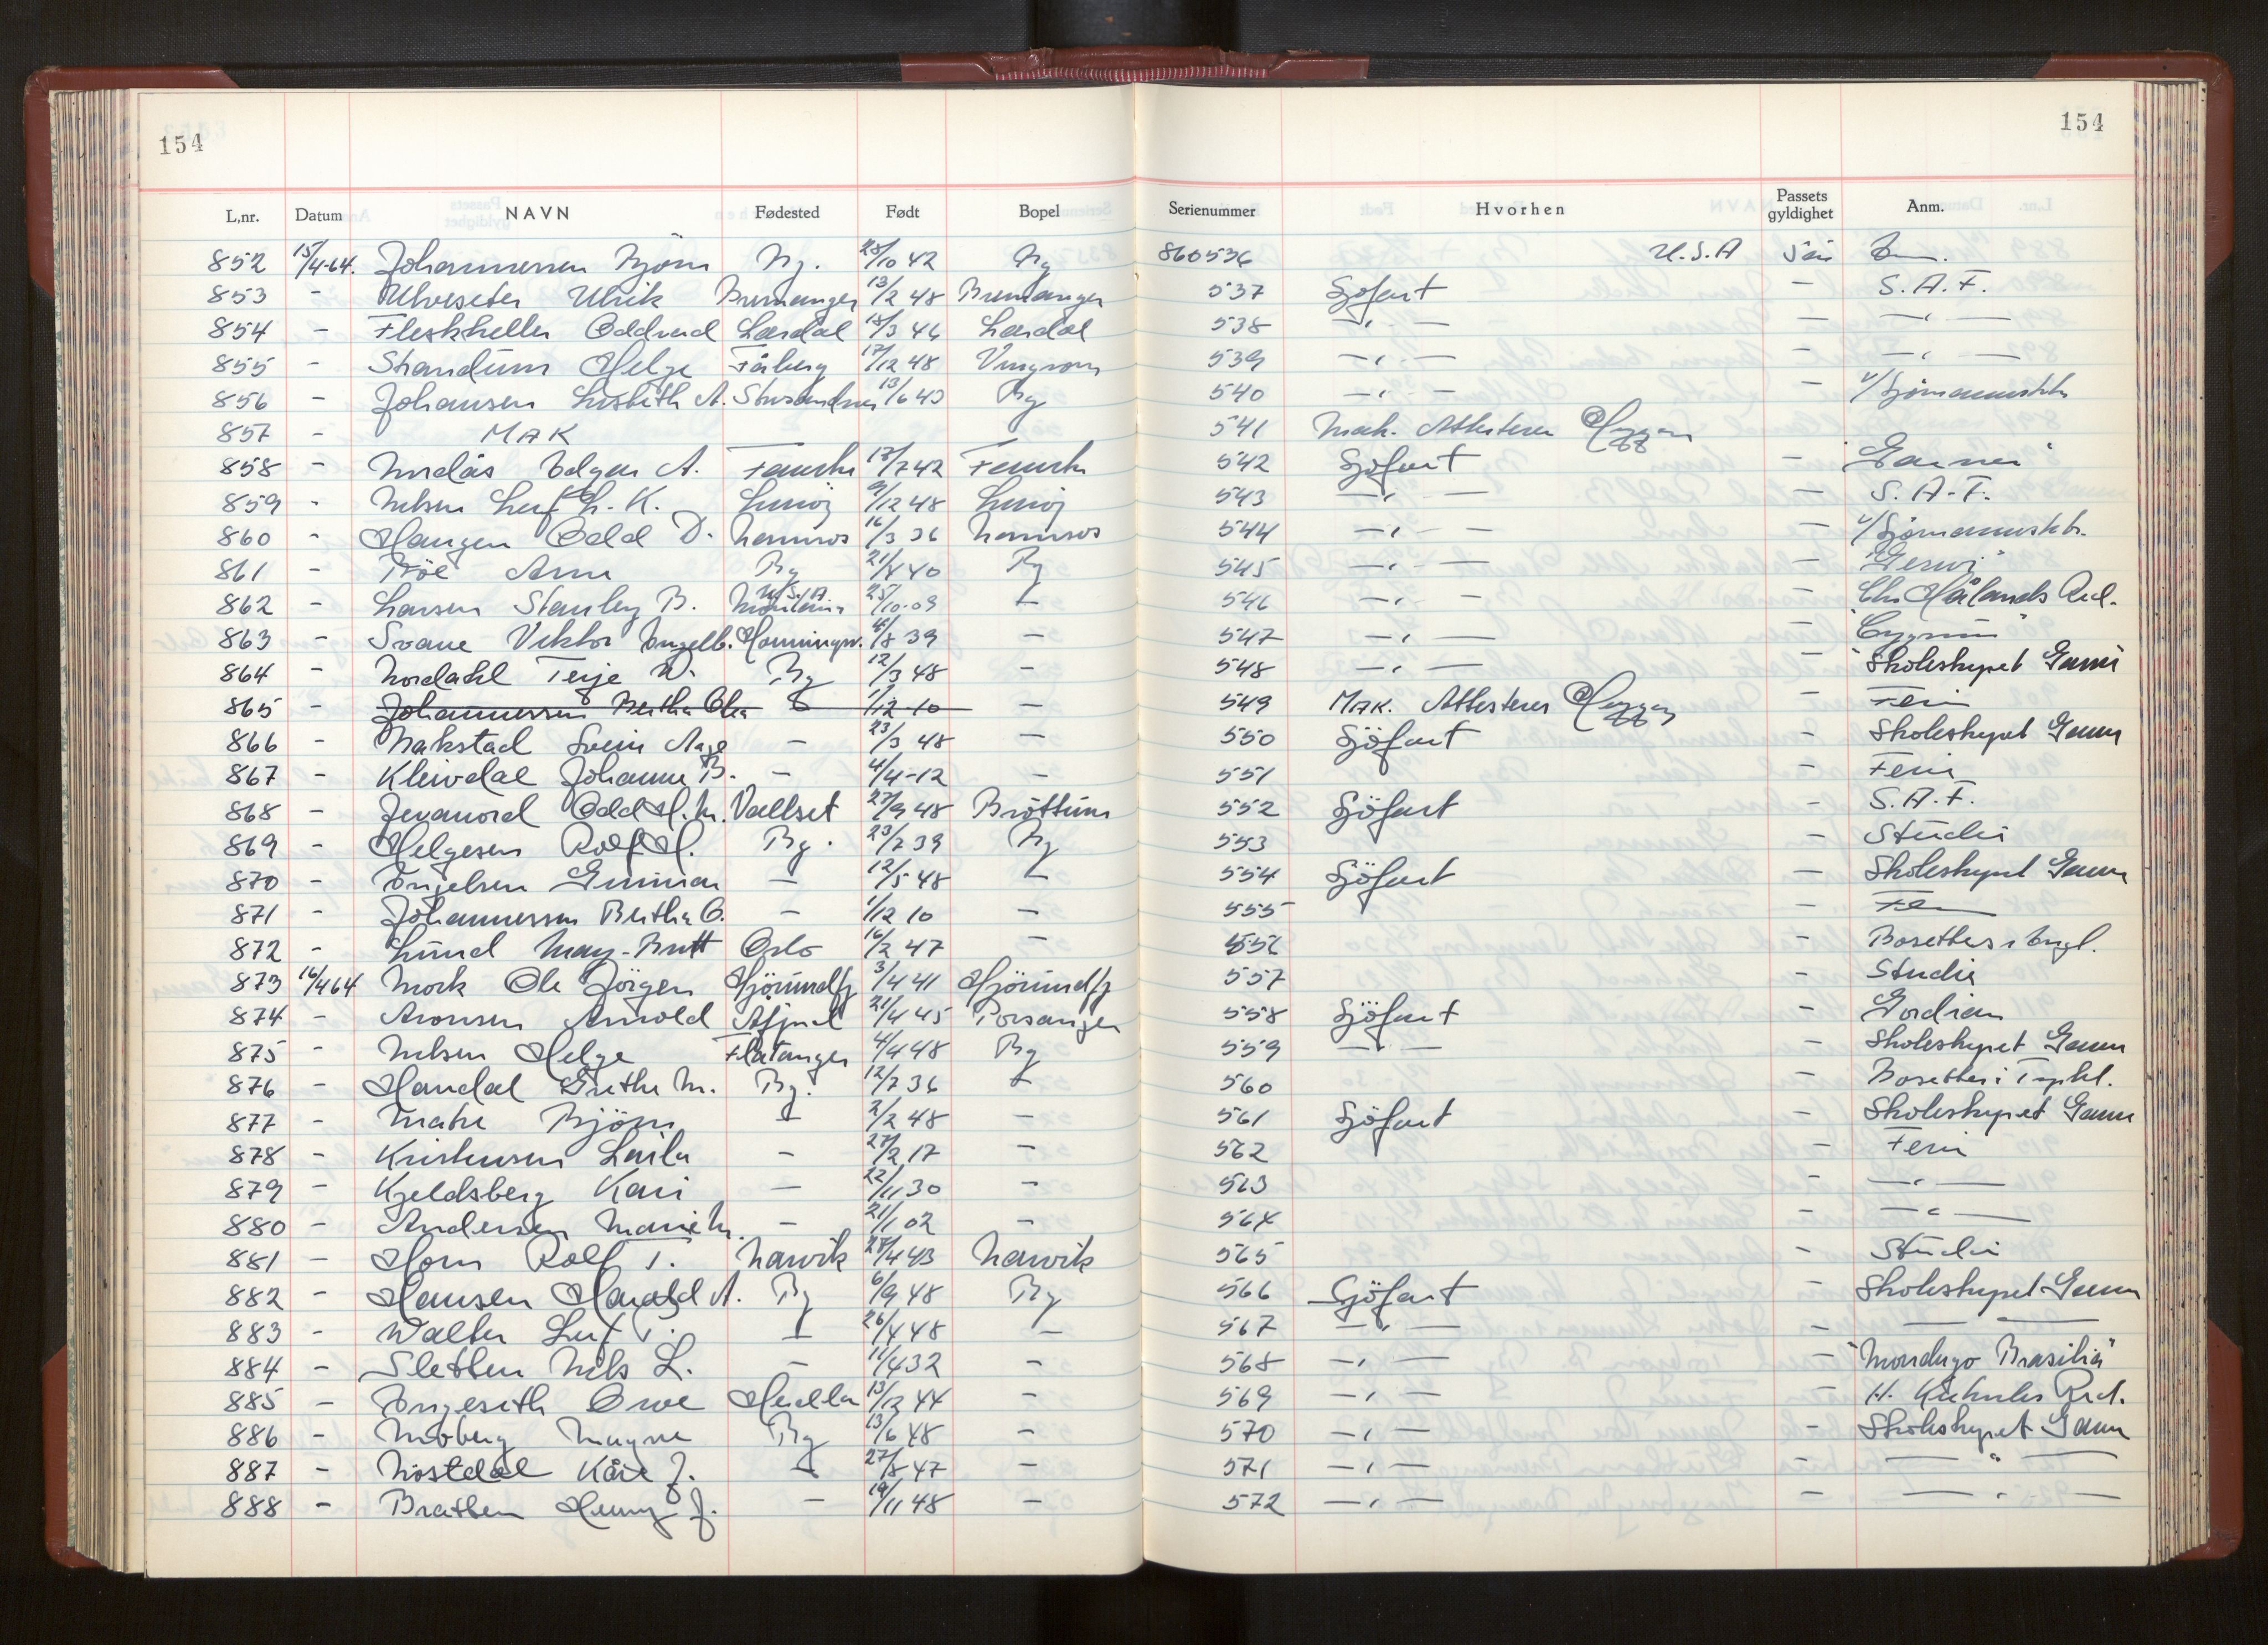 154
154
L,nr. Datum NAVN Fødested Født Bopel Serienummer Hvorhen Passets gyldighet Anm.
852 15/4-64. Johannessen Björn Bg. 28/10 42 Bg 860536 U.S.A 5 år
853 - Ulveseter Ulrik Bremanger 13/2 48 Bremanger 537 Sjöfart - S.A.F.
854 - Fleskheller Oddvard Lærdal 18/3 46 Lærdal 538 -"- - -"-
855 - Strandum Helge Fåberg 17/12 48 Vingrom 539 -"- - -"-
856 - Johansen Lisbeth A. 13/6 43 Bg 540 -"- - v/Sjömannsktr
857 - MAK 541 Mak. Attesterer
858 - Nordås Edgar A. Fauske 18/7 42 Fauske 542 Sjöfart - "Garnes"
859 - Nilsen Leif H. K. Lurøy 9/12 48 Lurøy 543 -"- - S.A.F.
860 - Haugen Odd D. Namsos 16/3 36 Namsos 544 -"- - v/Sjömannsktr.
861 - Arne Bg 21/4 40 Bg 545 -"- -
862 - Larsen Stanley B. U.S.A Montana 25/10-09 - 546 -"- - Chr Hålands Red.
863 - Svane Viktor Ingelb. Honningsv. 4/8 39 - 547 -"- - "Cygnus"
864 - Nordahl Terje W. Bg 12/3 48 - 548 -"- - Skoleskipet Gann
865 - Johannessen Bertha Olea 1/12-10 - 549 MAK. Attesterer - Ferie
866 - Bakstad Svein Aage - 23/3 48 - 550 Sjöfart - Skoleskipet Gann
867 - Kleivdal Johanne B. - 4/4-12 - 551 - Ferie
868 - Jevanord Odd H. M. Vallset 27/9 48 Bröttum 552 Sjöfart - S.A.F.
869 - Helgesen Rolf H. Bg. 23/7 39 Bg 553 - Studie
870 - Engelsen Gunnar - 12/5 48 - 554 Sjöfart - Skoleskipet Gann
871 - Johannessen Bertha O. - 1/12 10 - 555 - Ferie
872 - Lund May-Britt Oslo 16/2 47 - 556 - Bosettes i Engl.
873 16/4 64 Mork Ole Jörgen Hjörundfj 3/4 41 Hjörundfj 557 - Studie
874 - Aronsen Arnold Åfjord 21/4 45 Porsanger 558 Sjöfart - Gordian
875 - Nilsen Helge Flatanger 4/4 48 Bg 559 -"- - Skoleskipet Gann
876 - Handal Grethe M. Bg. 12/7 36 - 560 - Bosettes i Tyskl.
877 - Matre Björn - 2/2 48 - 561 Sjöfart - Skoleskipet Gann
878 - Kristensen Laila - 27/2 17 - 562 - Ferie
879 - Kjeldsberg Kari - 22/11 30 - 563 - -"-
880 - Andersen Marie M. - 21/1 02 - 564 - -"-
881 - Horn Rolf T. Narvik 28/4 43 Narvik 565 - Studie
882 - Hansen Harald A. Bg 6/9 48 Bg 566 Sjöfart - Skoleskipet Gann
883 - Walter Leif T. - 26/4 48 - 567 -"- - - -
884 - Sletten Nils L. - 11/4 32 - 568 -"- - "Mondego Brasilia"
885 - Engeseth Orve Hedla 13/12 44 - 569 -"- - H. Kuhnles Red.
886 - Moberg Magne Bg 13/6 48 - 570 -"- - Skoleskipet Gann
887 - Nöstdal Kåre J. - 27/8 47 - 571 -"- - -"-
888 - Bratten Henry J. - 19/11 48 - 572 -"- - -"-